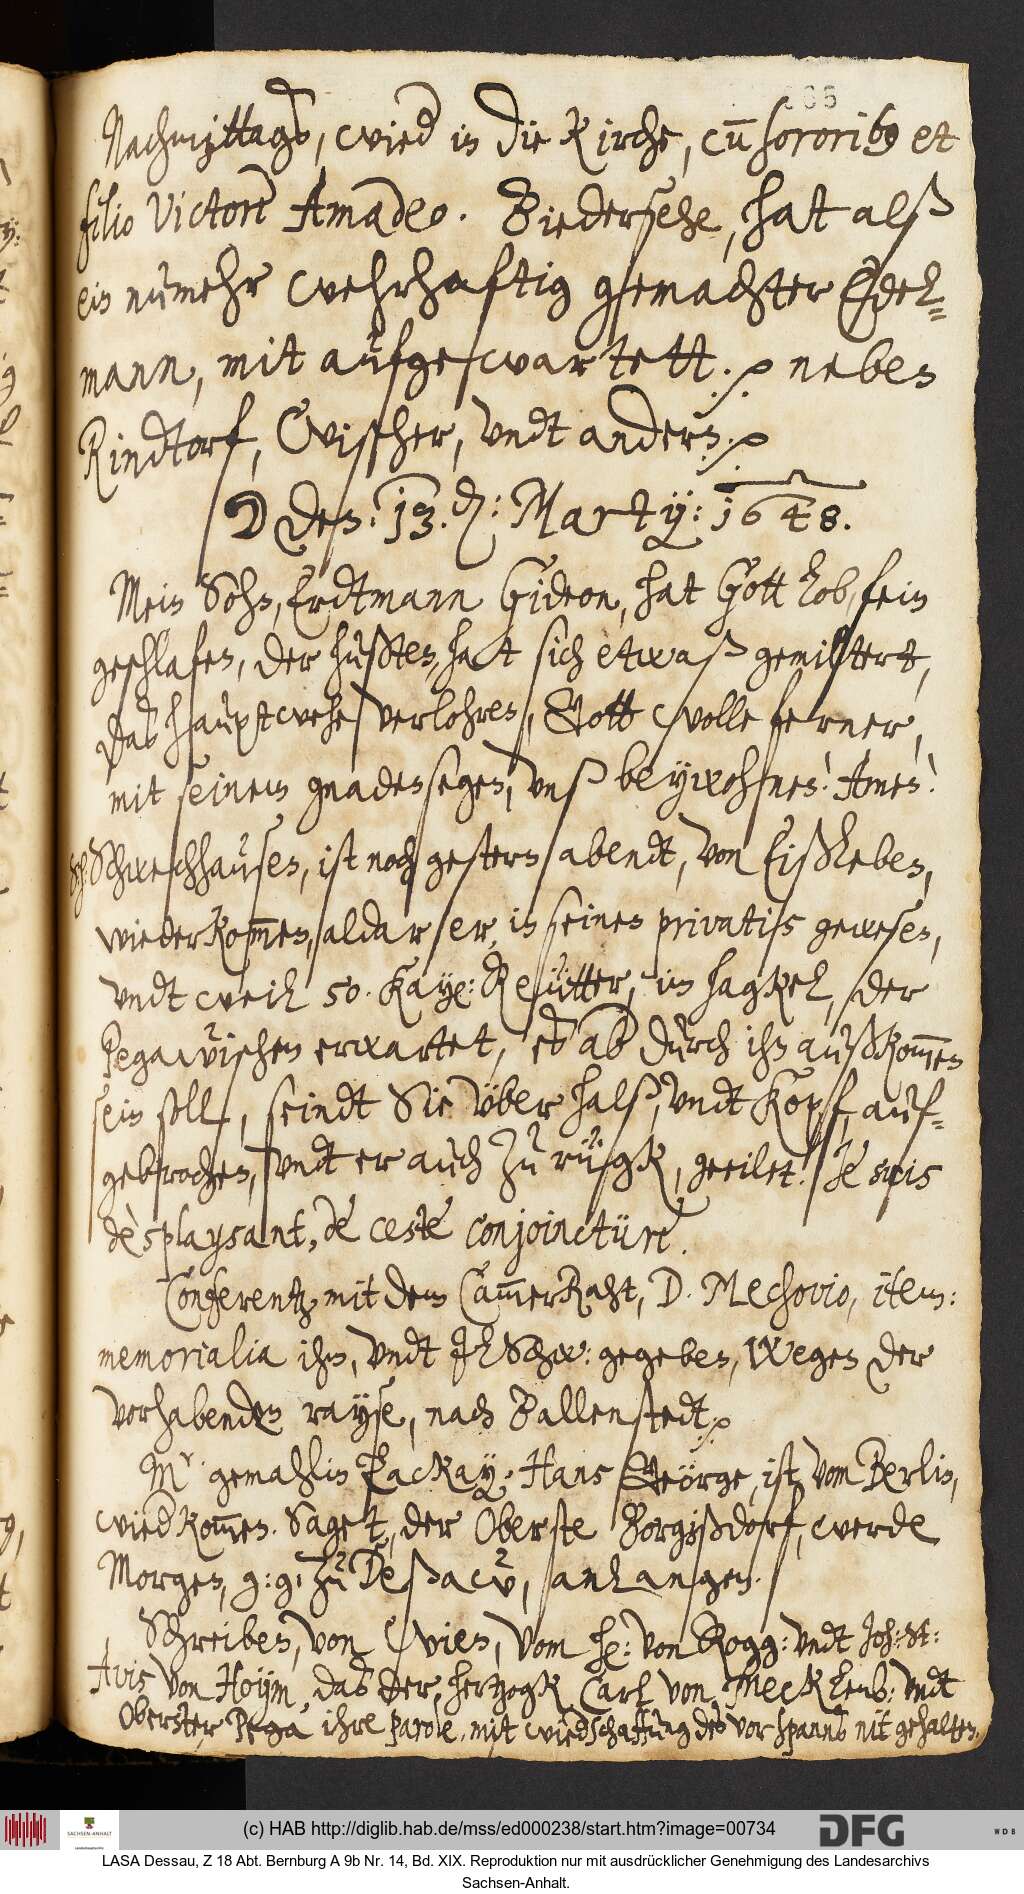 Nachmittags, wied in die Kirche, cū sororib9 et
filio Victore Amadeo. Biedersehe, hat alß
ein nůmehr wehrhaftig gemachter Edel=
mann, mit aufgewartett. neben
Rindtorf, Wischer, vndt andern.
den: 13. Martÿ: 1648.
Mein Sohn, Erdtmann Gideon, hat Gott lob, fein
geschlafen, der husten, hat sich etwaß gemiltert,
das haůptwehe verlohren, Gott wolle ferner,
mit seinem gnadensegen, vnß beÿwohnen! Amen!
Schwechhausen, ist noch gestern abendt, von Eißleben,
wiederkom̄en, aldar er, in seinen privatis gewesen,
vndt weil 50. Kaye: Reütter, im hagkel, der
Pegawischen erwartet, es ab důrch ihn außkom̄en
sein soll, seindt Sie vber halß, vndt Kopf, auf=
gebrochen, vndt er auch zů růgk, geeilet. Je suis
desplaysant, de ceste conjoincture.
Conferentz mit dem Cam̄erRaht, D. Mechovio, item:
memorialia ihm, vndt Schw: gegeben, wegen der
vorhabenden rayse, nach Ballenstedt.
Mr. gemahlin Lackay, Hans Geörge, ist, von Berlin,
wied kom̄en. Saget, der Oberste Borgißdorf, werde
Morgen, g: g: zů Deßaw, anlangen.
Schreiben, von Wien, vom he: von Rogg: vndt Joh: St:
Avis von Hoÿm, das der, hertzogk Carl von Mecklenb: vndt
Oberster Pega ihre parole, mit wiedschaffůng des vorspanns nit gehalten.
(c) HAB http://diglib.hab.de/mss/ed000238/start.htm?image=00734
SACHSEN-ANHALT
DFG
WDB
LASA Dessau, Z 18 Abt. Bernburg A 9b Nr. 14, Bd. XIX. Reproduktion nur mit ausdrücklicher Genehmigung des Landesarchivs
Sachsen-Anhalt.